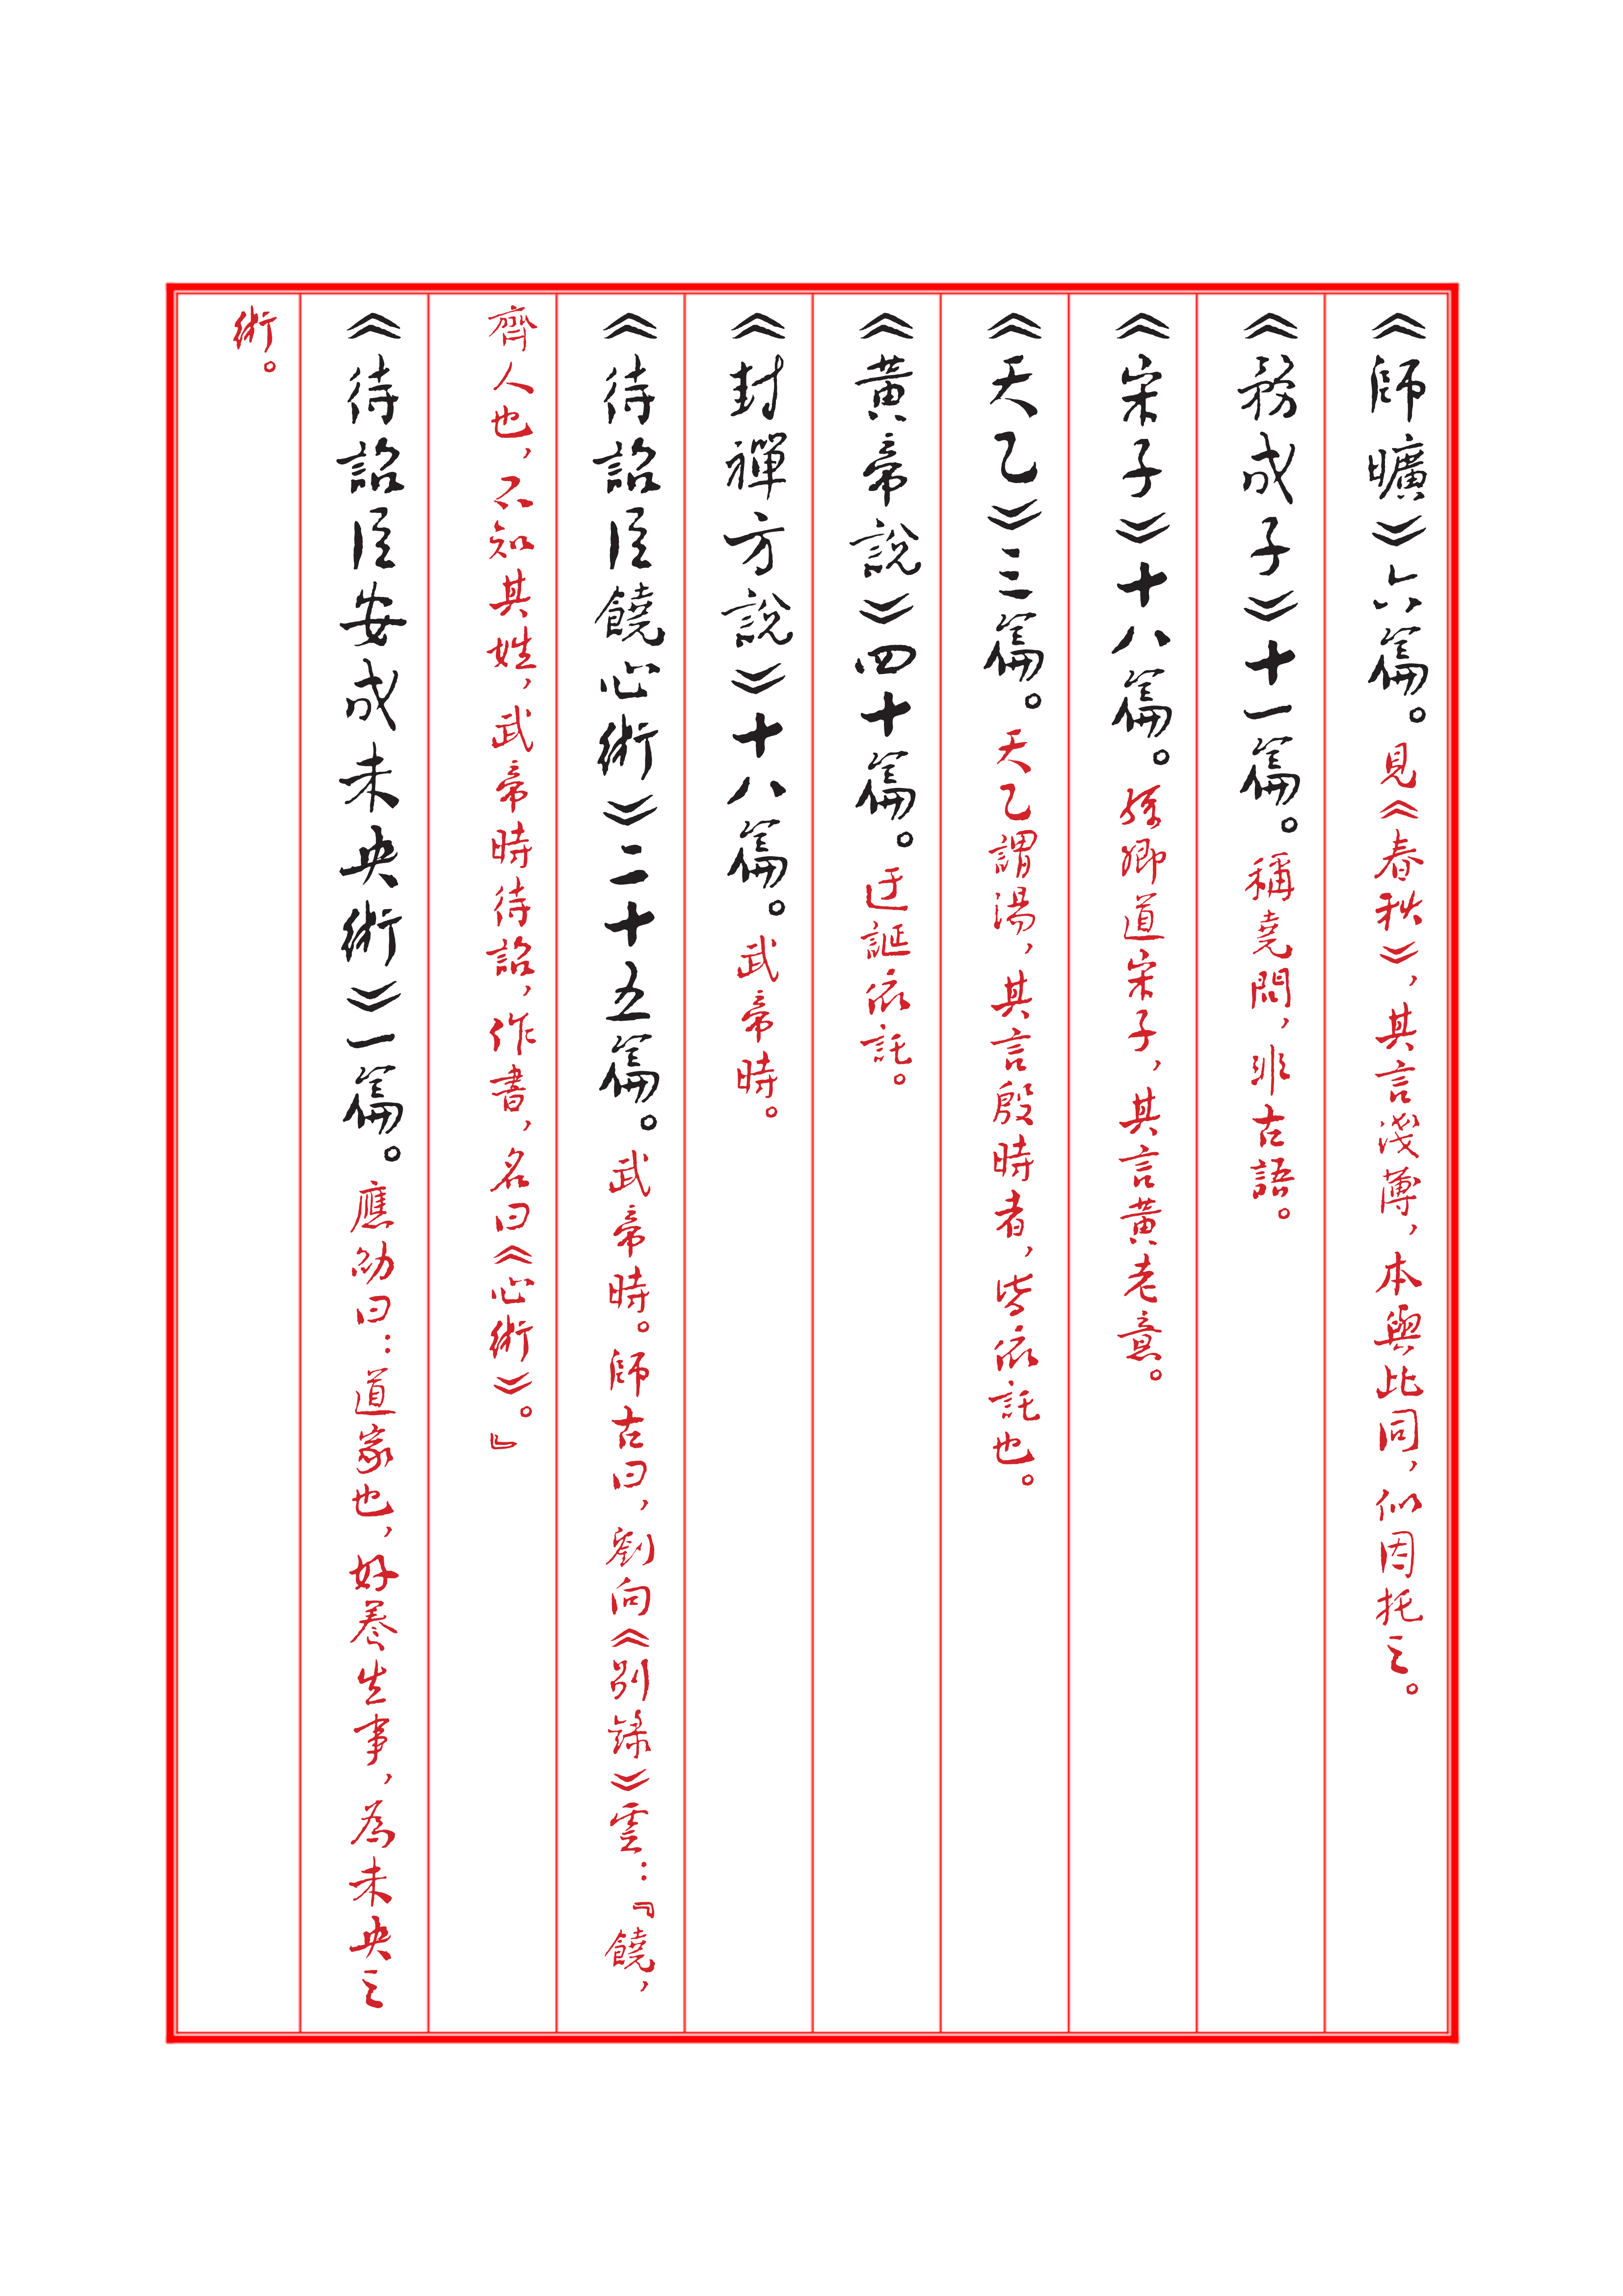 《師曠》六篇。見《春秋》，其言淺薄，本與此同，似因托之。
《務成子》十一篇。稱堯問，非古語。
《宋子》十八篇。孫卿道宋子，其言黃老意。
《天乙》三篇。天乙謂湯，其言殷時者，皆依託也。
《黃帝說》四十篇。迂誕依託。
《封禪方說》十八篇。武帝時。
《待詔臣饒心術》二十五篇。武帝時。師古曰，劉向《別錄》雲：『饒，
齊人也，不知其姓，武帝時待詔，作書，名曰《心術》。』
《待詔臣安成未央術》一篇。應劭曰：道家也，好養生事，為未央之
術。